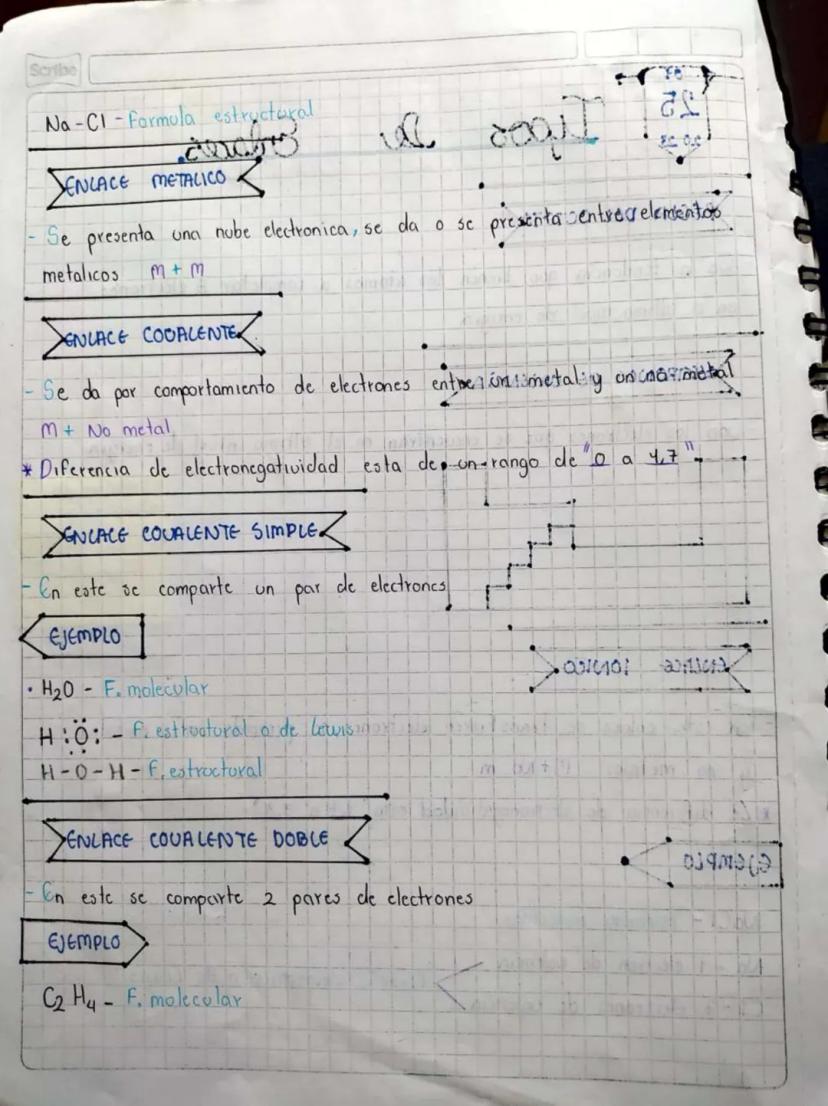 Scribe
Na-Cl - Formula estructural
ENLACE METALICO
- Se presenta una nube electronica, se da o se presenta entre elementos
metalicos m + m
ENLACE COVALENTE
- Se da por comportamiento de electrones entre un metal y un no metal
M + No metal
* Diferencia de electronegatividad esta de un rango de "0 a 1,7"
ENLACE COVALENTE SIMPLE
- En este se comparte un par de electrones
EJEMPLO
• H2O - F. molecular
H:Ö: - F. estructural o de Lewis
H-O-H - F. estructural
ENLACE COVALENTE DOBLE
- En este se comparte 2 pares de electrones
EJEMPLO
C2H4 - F. molecular